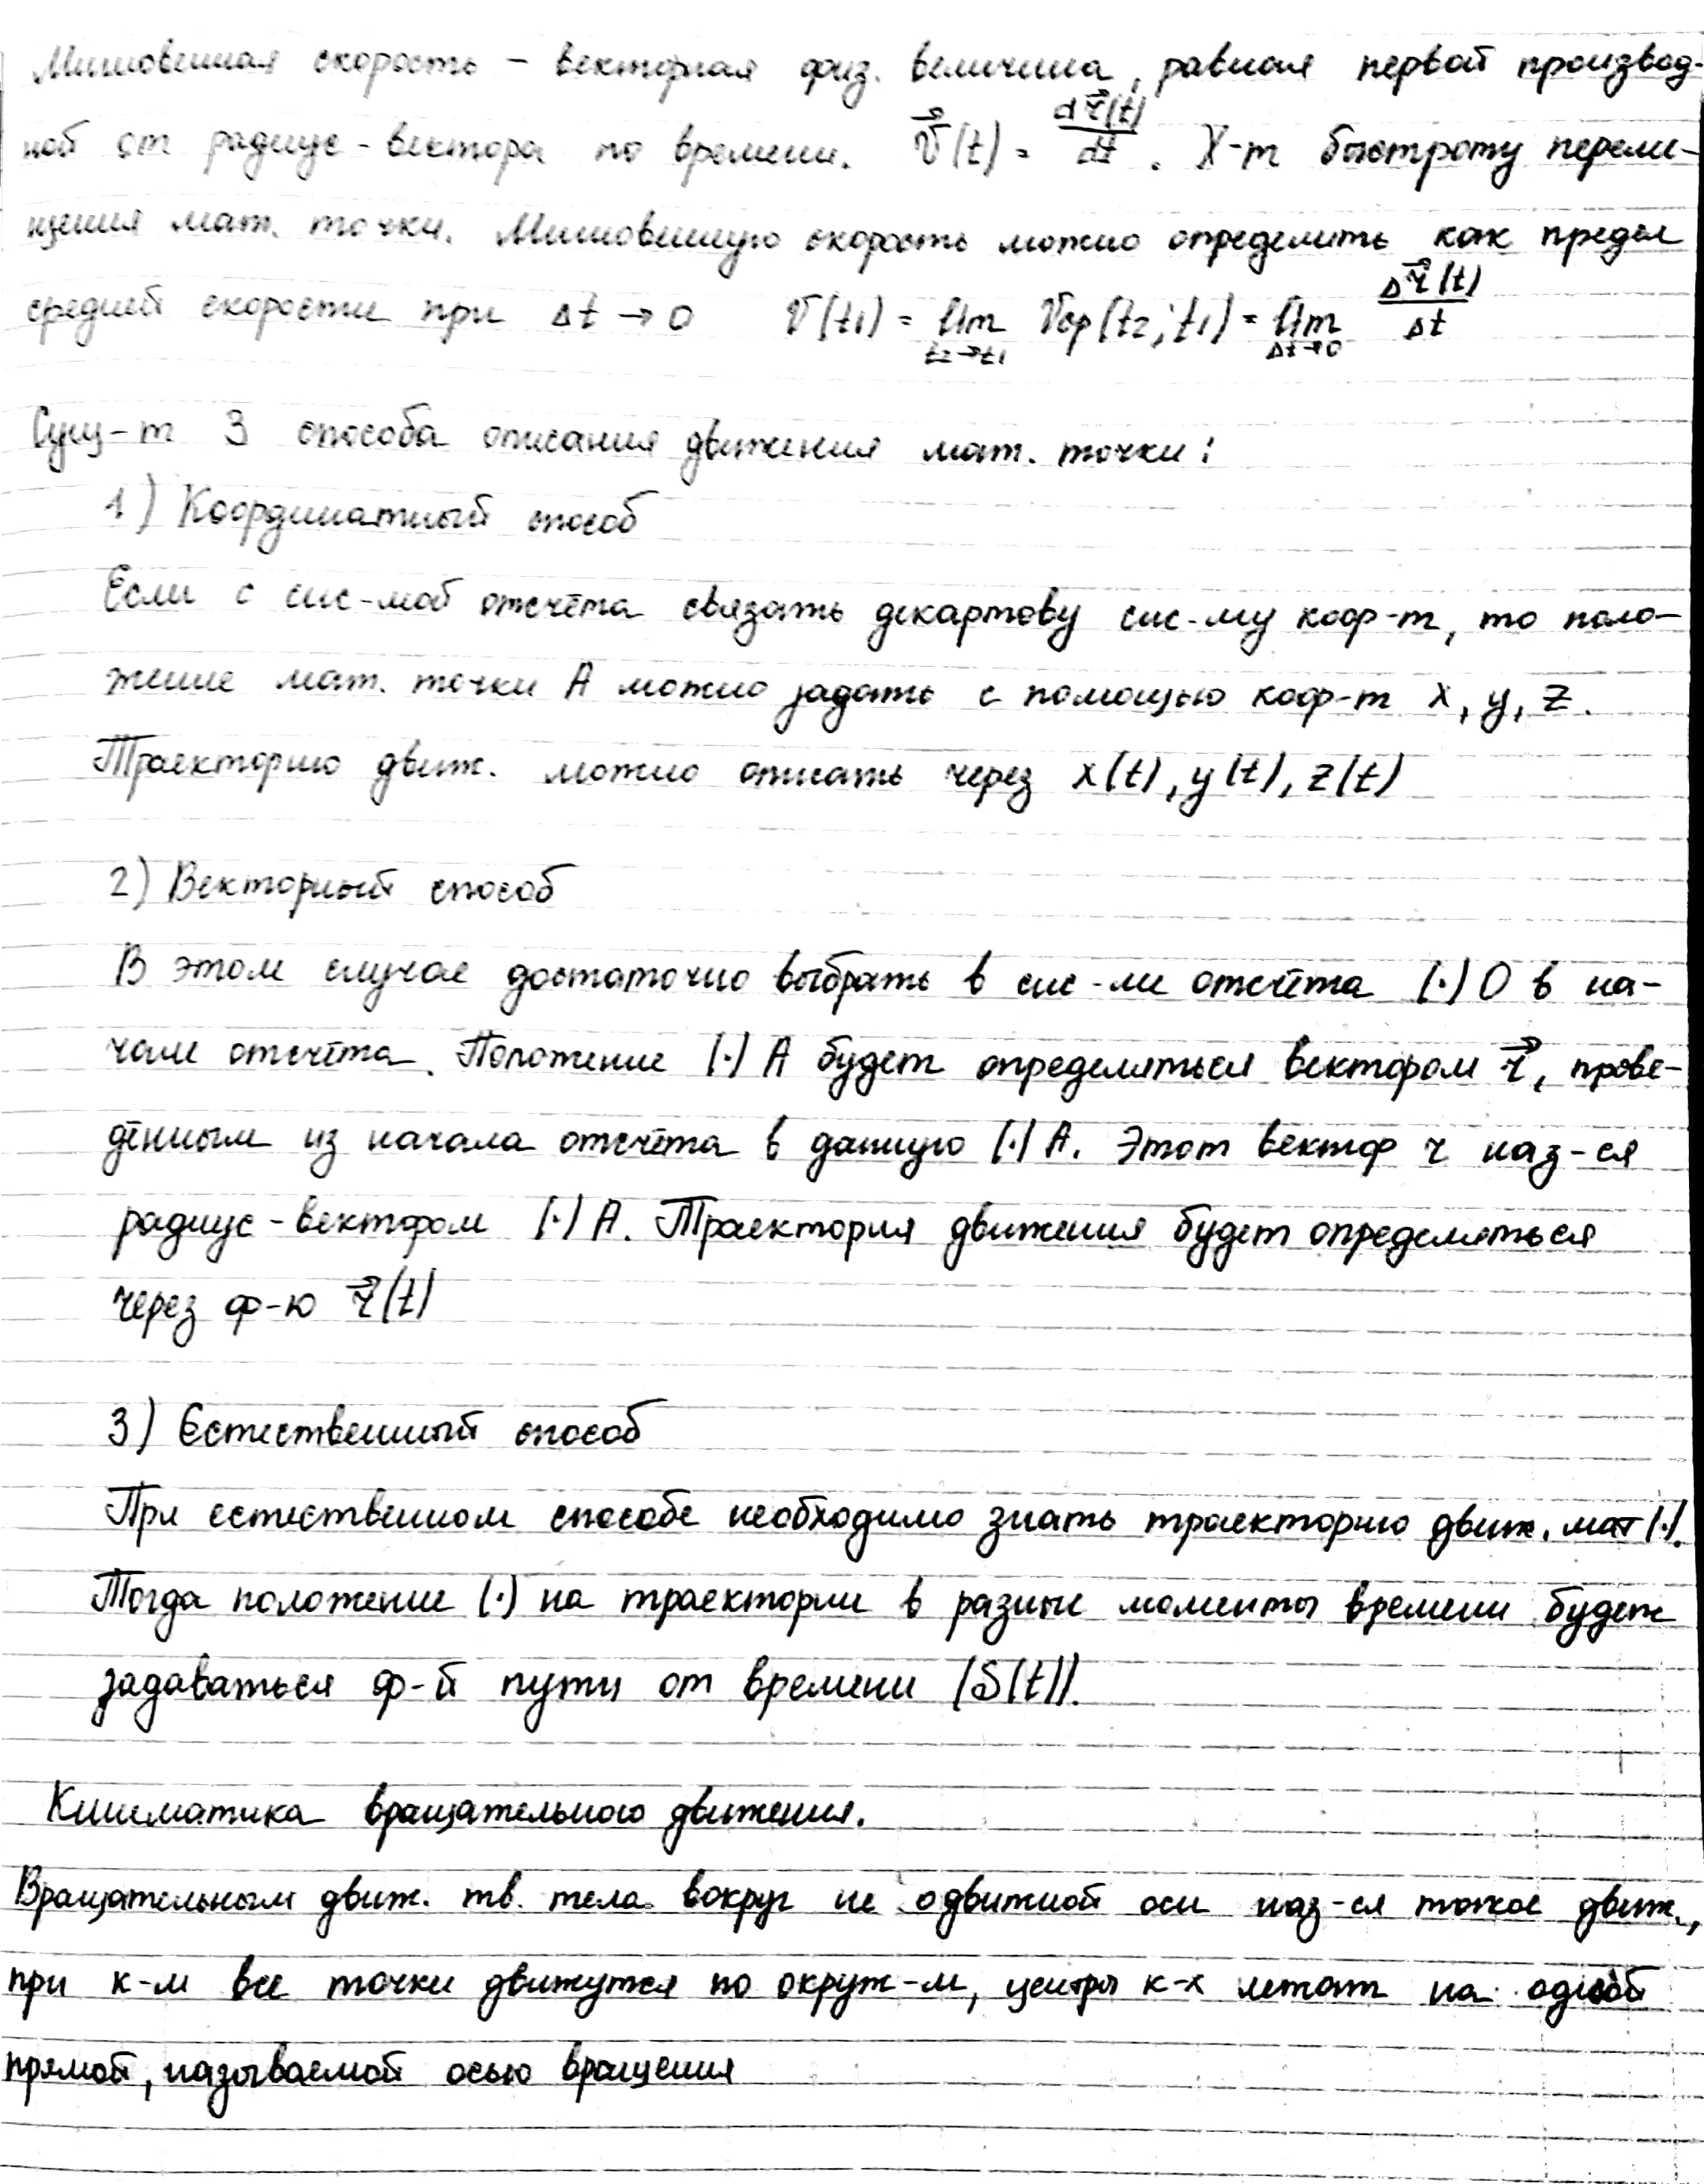 Мгновенная скорость – векторная физ. величина, равная первой производ-
ной от радиус-вектора по времени. v⃗(t) = dr⃗(t)/dt. Х-т быстроту переме-
щения мат. точки. Мгновенную скорость можно определить как предел
средней скорости при Δt → 0 v(t₁) = lim t₂→t₁ vср(t₂; t₁) = lim Δt→0 Δr⃗(t)/Δt
Сущ-т 3 способа описания движения мат. точки:
1) Координатный способ
Если с сис-мой отсчёта связать декартову сис-му коор-т, то поло-
жение мат. точки А можно задать с помощью коор-т x, y, z.
Траекторию движ. можно описать через x(t), y(t), z(t)
2) Векторный способ
В этом случае достаточно выбрать в сис-ме отсчёта (·) О в на-
чале отсчёта. Положение (·) А будет определяться вектором r⃗, прове-
дённым из начала отсчёта в данную (·) А. Этот вектор r наз-ся
радиус-вектором (·) А. Траектория движения будет определяться
через ф-ю r⃗(t)
3) Естественный способ
При естественном способе необходимо знать траекторию движ. мат (·).
Тогда положение (·) на траектории в разные моменты времени будет
задаваться ф-й пути от времени (S(t)).
Кинематика вращательного движения.
Вращательным движ. тв. тела вокруг не одвижной оси наз-ся такое движ.,
при к-м все точки движутся по окруж-м, центры к-х лежат на одной
прямой, называемой осью вращения